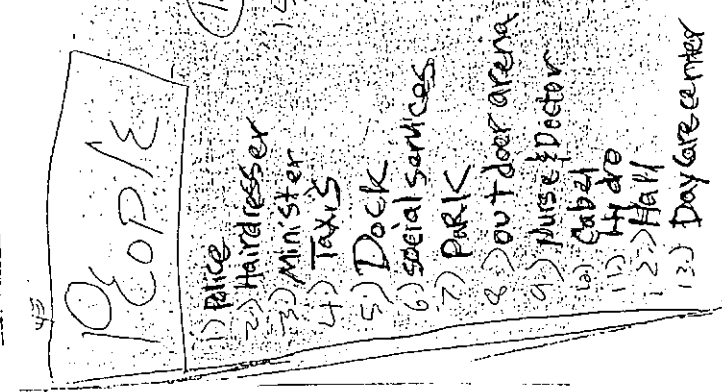 PEOPlE
1) Police
2) Hairdresser
3) Minister
4) Taxis
5) Dock
6) social services
7) Park
8) outdoor arena
9) Nurse & Doctor
10) Cabel
11) Hydro
12) Hall
13) Daycare center